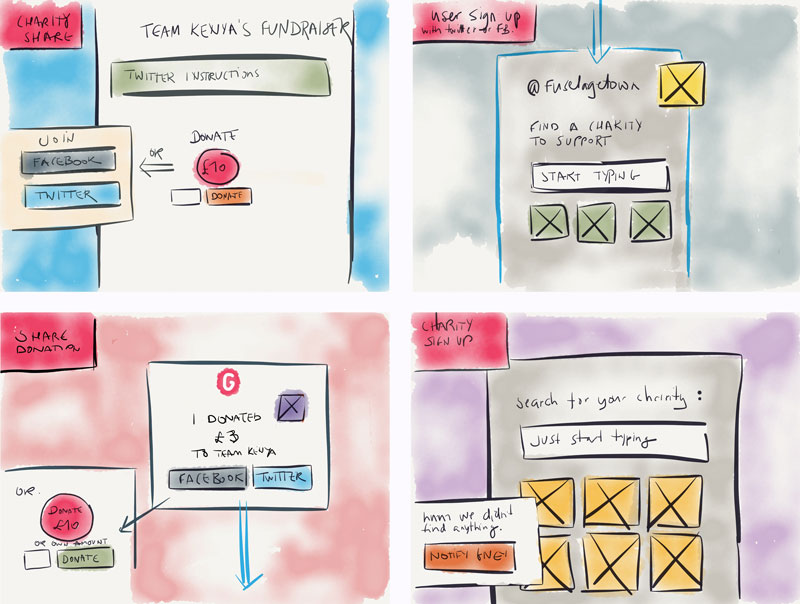 CHARITY
SHARE
TEAM KENYA'S FUNDRAISER
TWITTER INSTRUCTIONS
JOIN
FACEBOOK
TWITTER
OR
DONATE
£10
DONATE
USER SIGN UP
with twitter or FB.
@Fuselagetown
FIND A CHARITY
TO SUPPORT
START TYPING
SHARE
DONATION
G
I DONATED
£3
TO TEAM KENYA
FACEBOOK
TWITTER
OR.
DONATE
£10
OR OWN AMOUNT
DONATE
CHARITY
SIGN UP
search for your chririty :
Just start typing
hmm we didn't
find anything.
NOTIFY